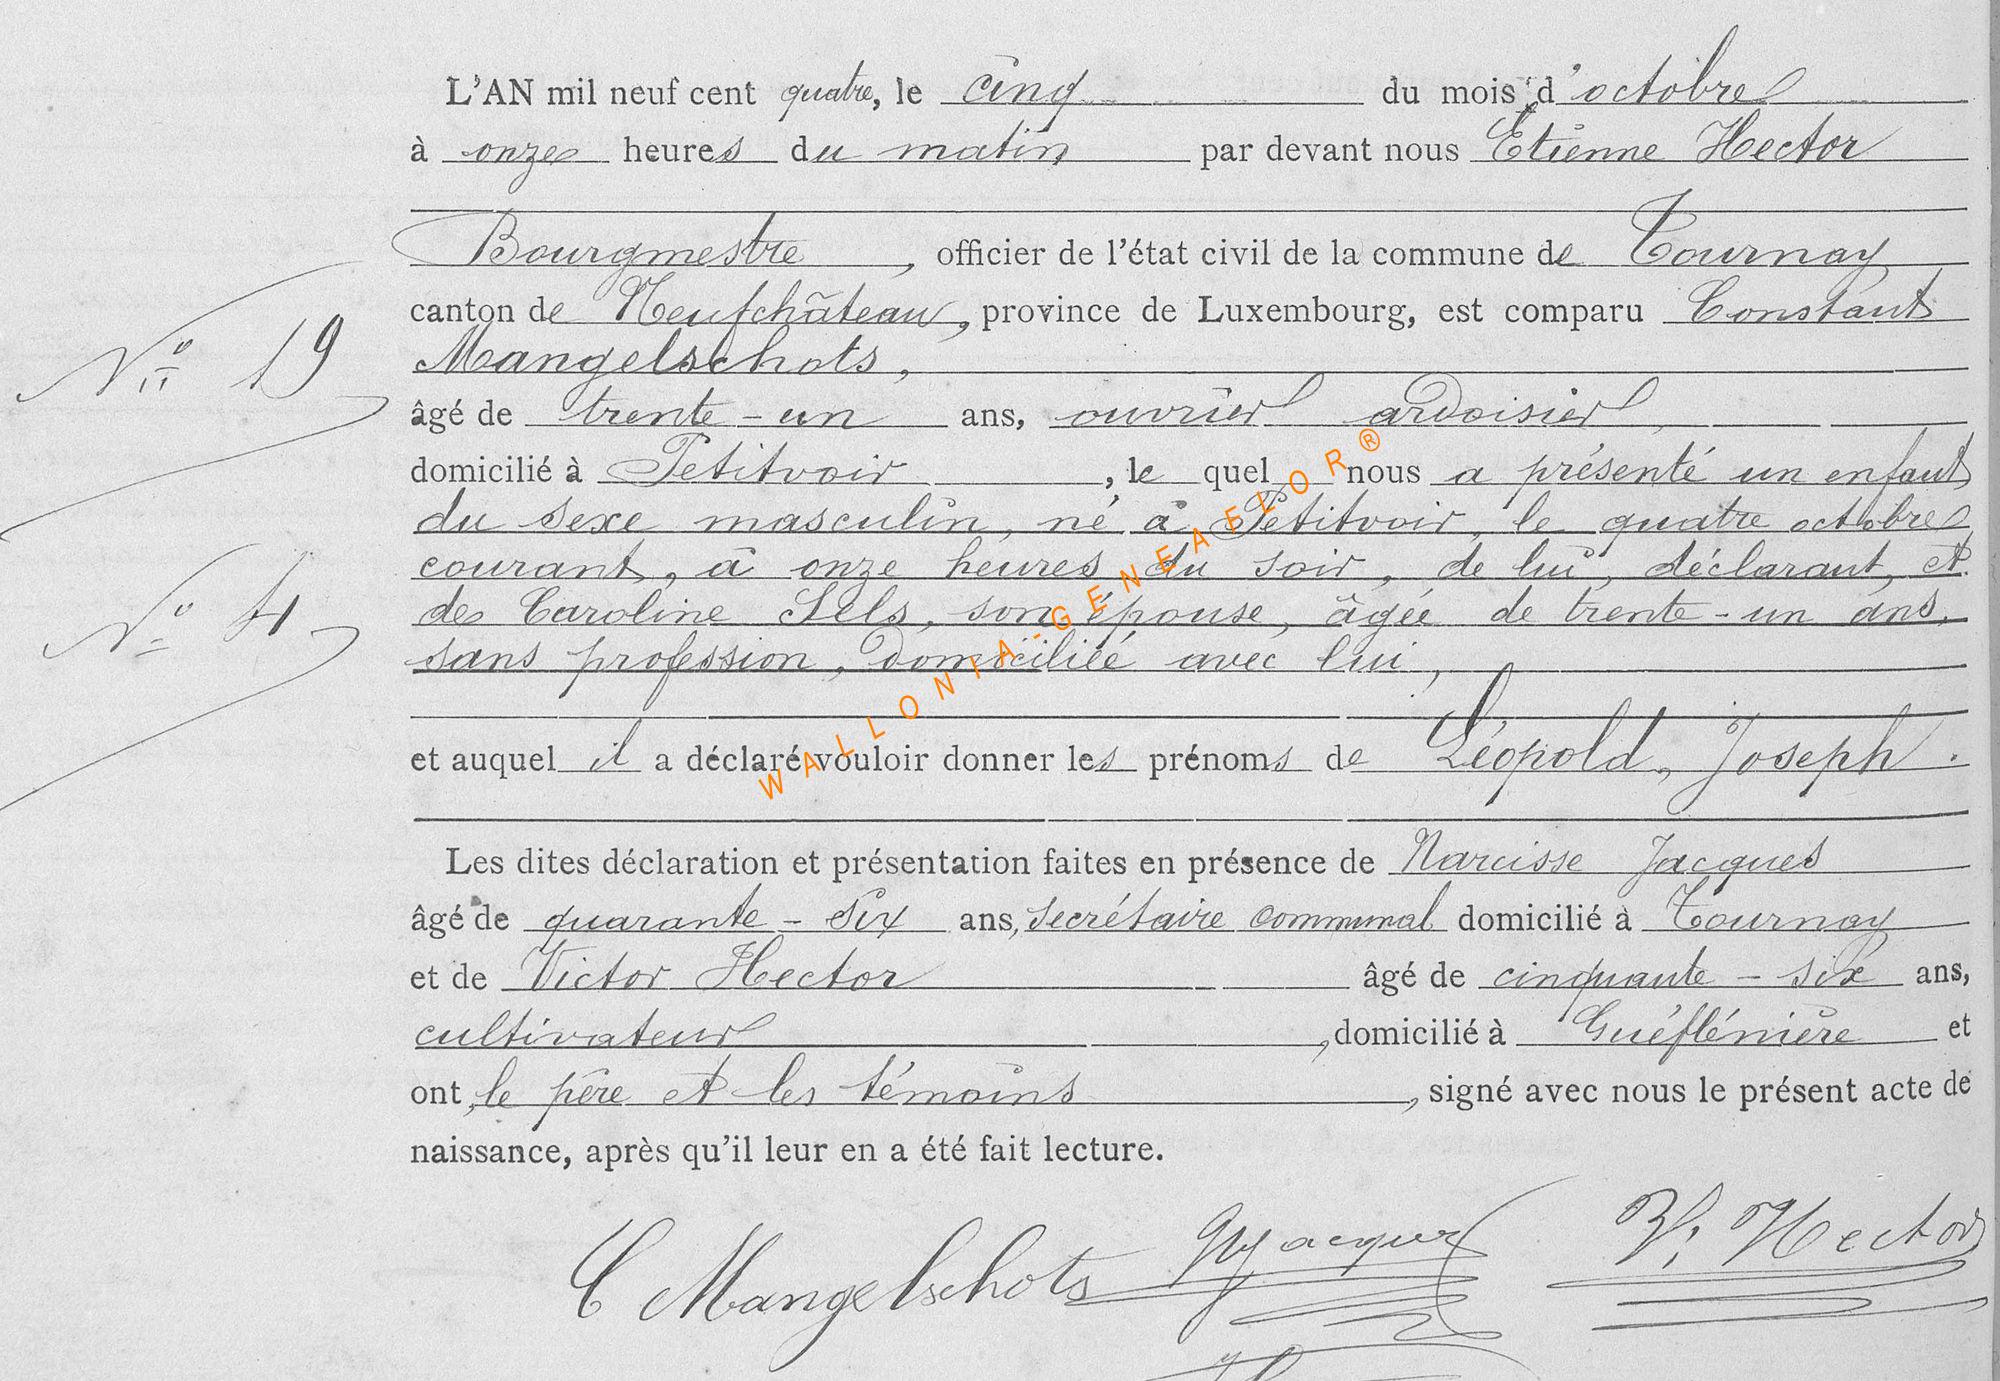 L'AN mil neuf cent quatre, le cinq du mois d'octobre
à onze heures du matin par devant nous Etienne Hector
Bourgmestre, officier de l'état civil de la commune de Tournay
canton de Neufchâteau, province de Luxembourg, est comparu Constant
N° 19
Mangelschots,
âgé de trente-un ans, ouvrier ardoisier,
domicilié à Petitvoir, le quel nous a présenté un enfant
du sexe masculin, né à Petitvoir, le quatre octobre
courant, à onze heures du soir, de lui, déclarant, et
N° 4
de Caroline Sels, son épouse, âgée de trente-un ans,
sans profession, domiciliée avec lui,
et auquel il a déclaré vouloir donner les prénoms de Léopold, Joseph.
WALLONIA-GENEAELOR®
Les dites déclaration et présentation faites en présence de Narcisse Jacques
âgé de quarante-six ans, secrétaire communal domicilié à Tournay
et de Victor Hector âgé de cinquante-six ans,
cultivateur, domicilié à Guéflénière et
ont, le père et les témoins, signé avec nous le présent acte de
naissance, après qu'il leur en a été fait lecture.
C Mangelschots NJacques V. Hector